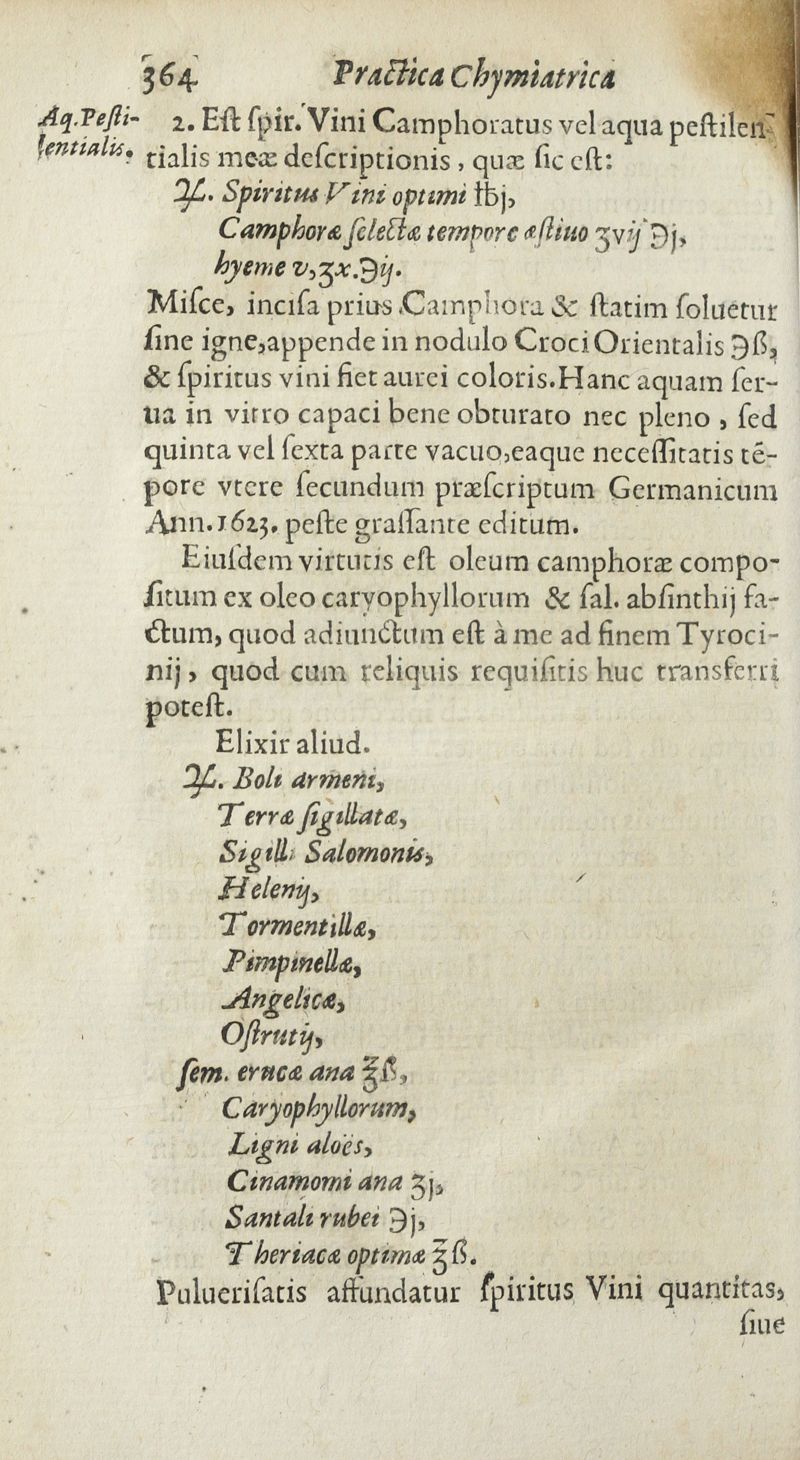 364 Practica Chymiatrica
Aq. Pesti-
lentialis.
2. Est spir. Vini Camphoratus vel aqua pestilen-
tialis meæ descriptionis, quæ sic est:
♃. Spiritus Vini optimi ℔j,
Camphoræ selectæ tempore æstiuo ʒvij ℈j,
hyeme v, ʒx. ℈ij.
Misce, incisa prius Camphora & statim soluetur
sine igne, appende in nodulo Croci Orientalis ℈ß,
& spiritus vini fiet aurei coloris. Hanc aquam ser-
ua in vitro capaci bene obturato nec pleno, sed
quinta vel sexta parte vacuo, eaque necessitatis tē-
pore vtere secundum præscriptum Germanicum
Ann. 1623. peste grassante editum.
Eiusdem virtutis est oleum camphoræ compo-
situm ex oleo caryophyllorum & sal. absinthij fa-
ctum, quod adiunctum est à me ad finem Tyroci-
nij, quod cum reliquis requisitis huc transferri
potest.
Elixir aliud.
♃. Boli armeni,
Terræ sigillatæ,
Sigilli Salomonis,
Helenij,
Tormentillæ,
Pimpinellæ,
Angelicæ,
Ostrutij,
sem. erucæ ana ℥ß,
Caryophyllorum,
Ligni aloës,
Cinamomi ana ʒj,
Santali rubei ℈j,
Theriacæ optimæ ℥ß.
Puluerisatis affundatur spiritus Vini quantitas,
siue